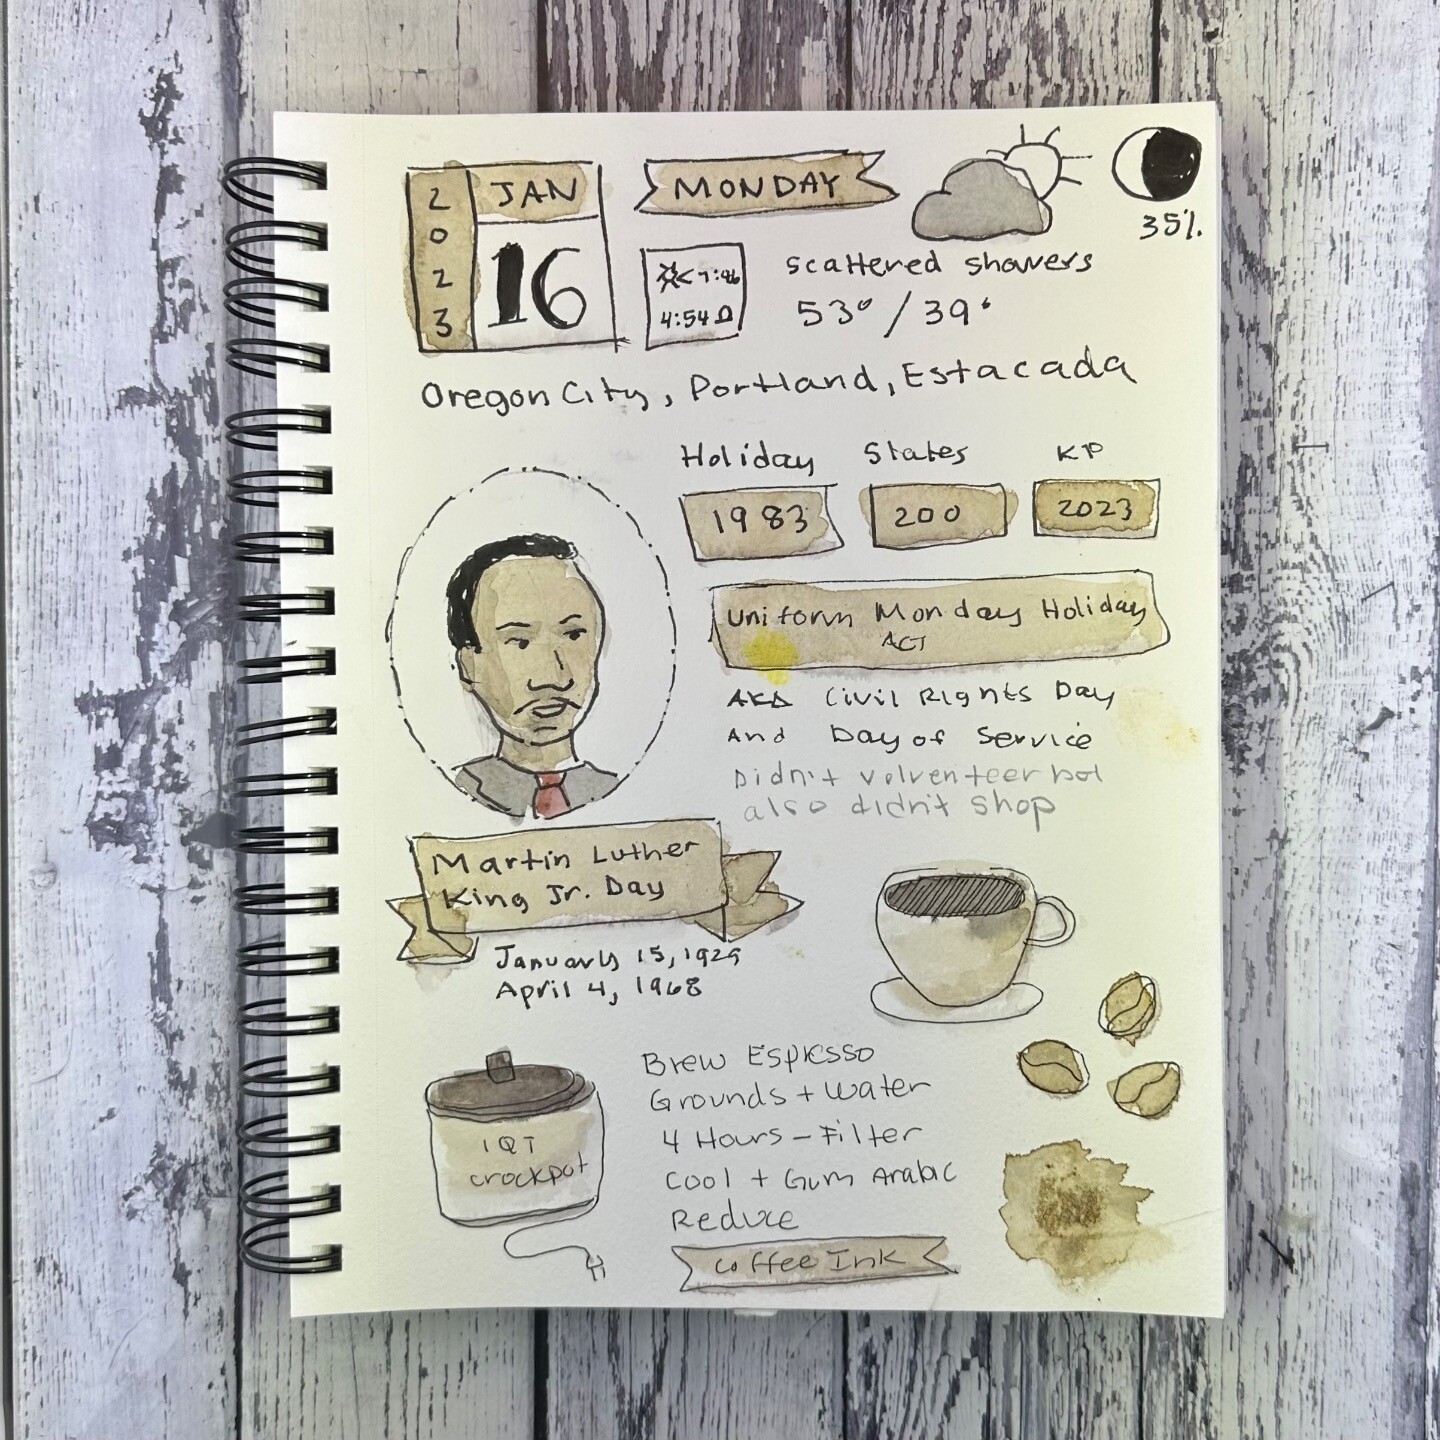 2023
JAN
16
MONDAY
35%
7:46
4:54
scattered showers
53° / 39°
Oregon City, Portland, Estacada
Holiday States KP
1983 200 2023
Uniform Monday Holiday
ACT
AKA Civil Rights Day
And Day of Service
Didn't volventeer but
also didn't shop
Martin Luther
King Jr. Day
January 15, 1929
April 4, 1968
1 QT
crockpot
Brew Espresso
Grounds + Water
4 Hours - Filter
Cool + Gum Arabic
Reduce
Coffee Ink